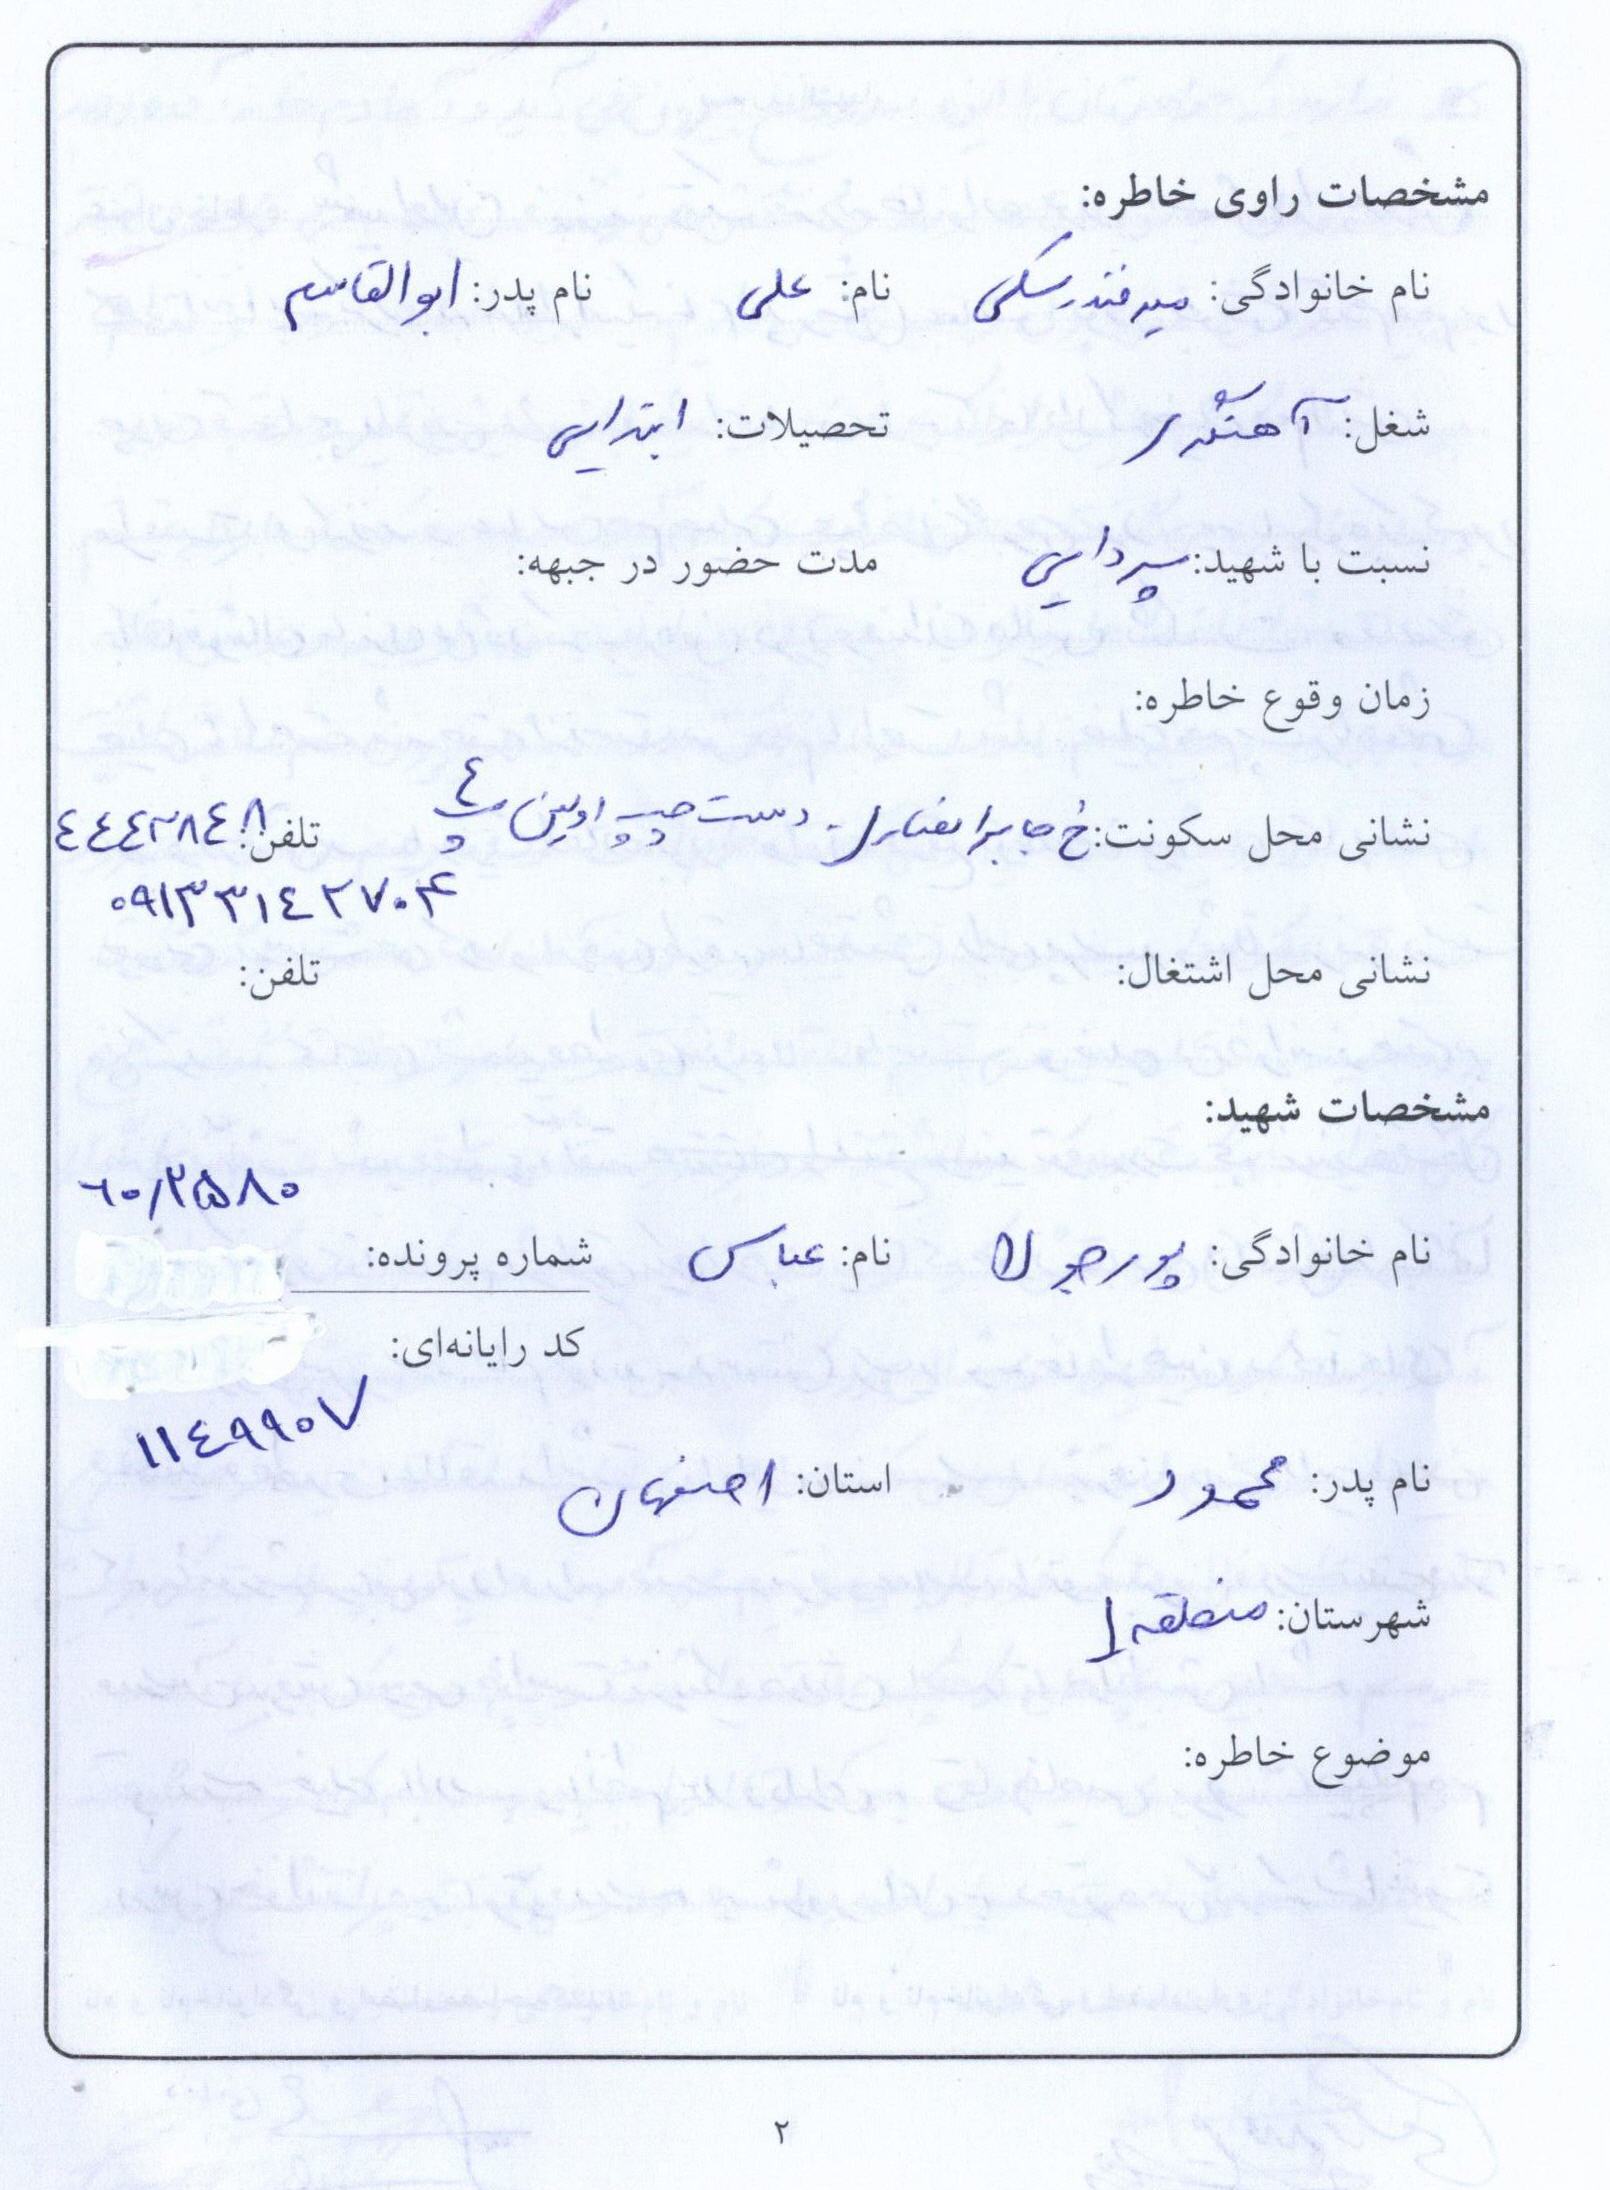 مشخصات راوی خاطره:
نام خانوادگی: میرفندرسکی نام: علی نام پدر: ابوالقاسم
شغل: آهنگر تحصیلات: ابتدایی
نسبت با شهید: پسردایی مدت حضور در جبهه:
زمان وقوع خاطره:
نشانی محل سکونت: خ جابرانصاری دست چپ اولین پ ٤ تلفن: ٤٤٤٣٨٤٨
۰۹۱۳۳۱٤۲۷۰۴
نشانی محل اشتغال: تلفن:
مشخصات شهید:
٦۰/۲۵۸۰
نام خانوادگی: پورجولا نام: عباس شماره پرونده:
کد رایانه‌ای:
۱۱٤۹۹۰۷
نام پدر: محمود استان: اصفهان
شهرستان: منطقه ۱
موضوع خاطره:
۲